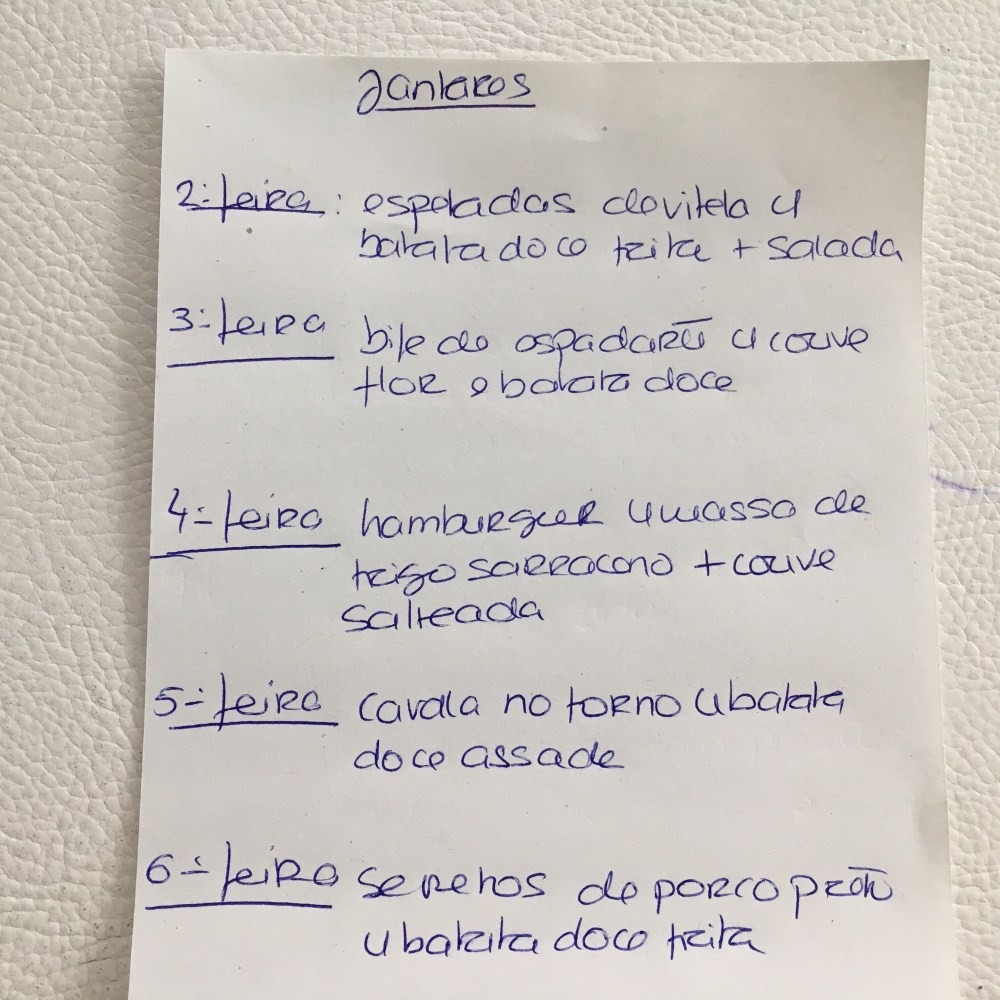 Jantares
2ª feira: espetadas de vitela c/
batata doce frita + salada
3ª feira bife de espadarte c/ couve
flor e batata doce
4ª feira hamburguer c/ massa de
trigo sarraceno + couve
salteada
5ª feira cavala no forno c/ batata
doce assada
6ª feira secretos de porco preto
c/ batata doce frita